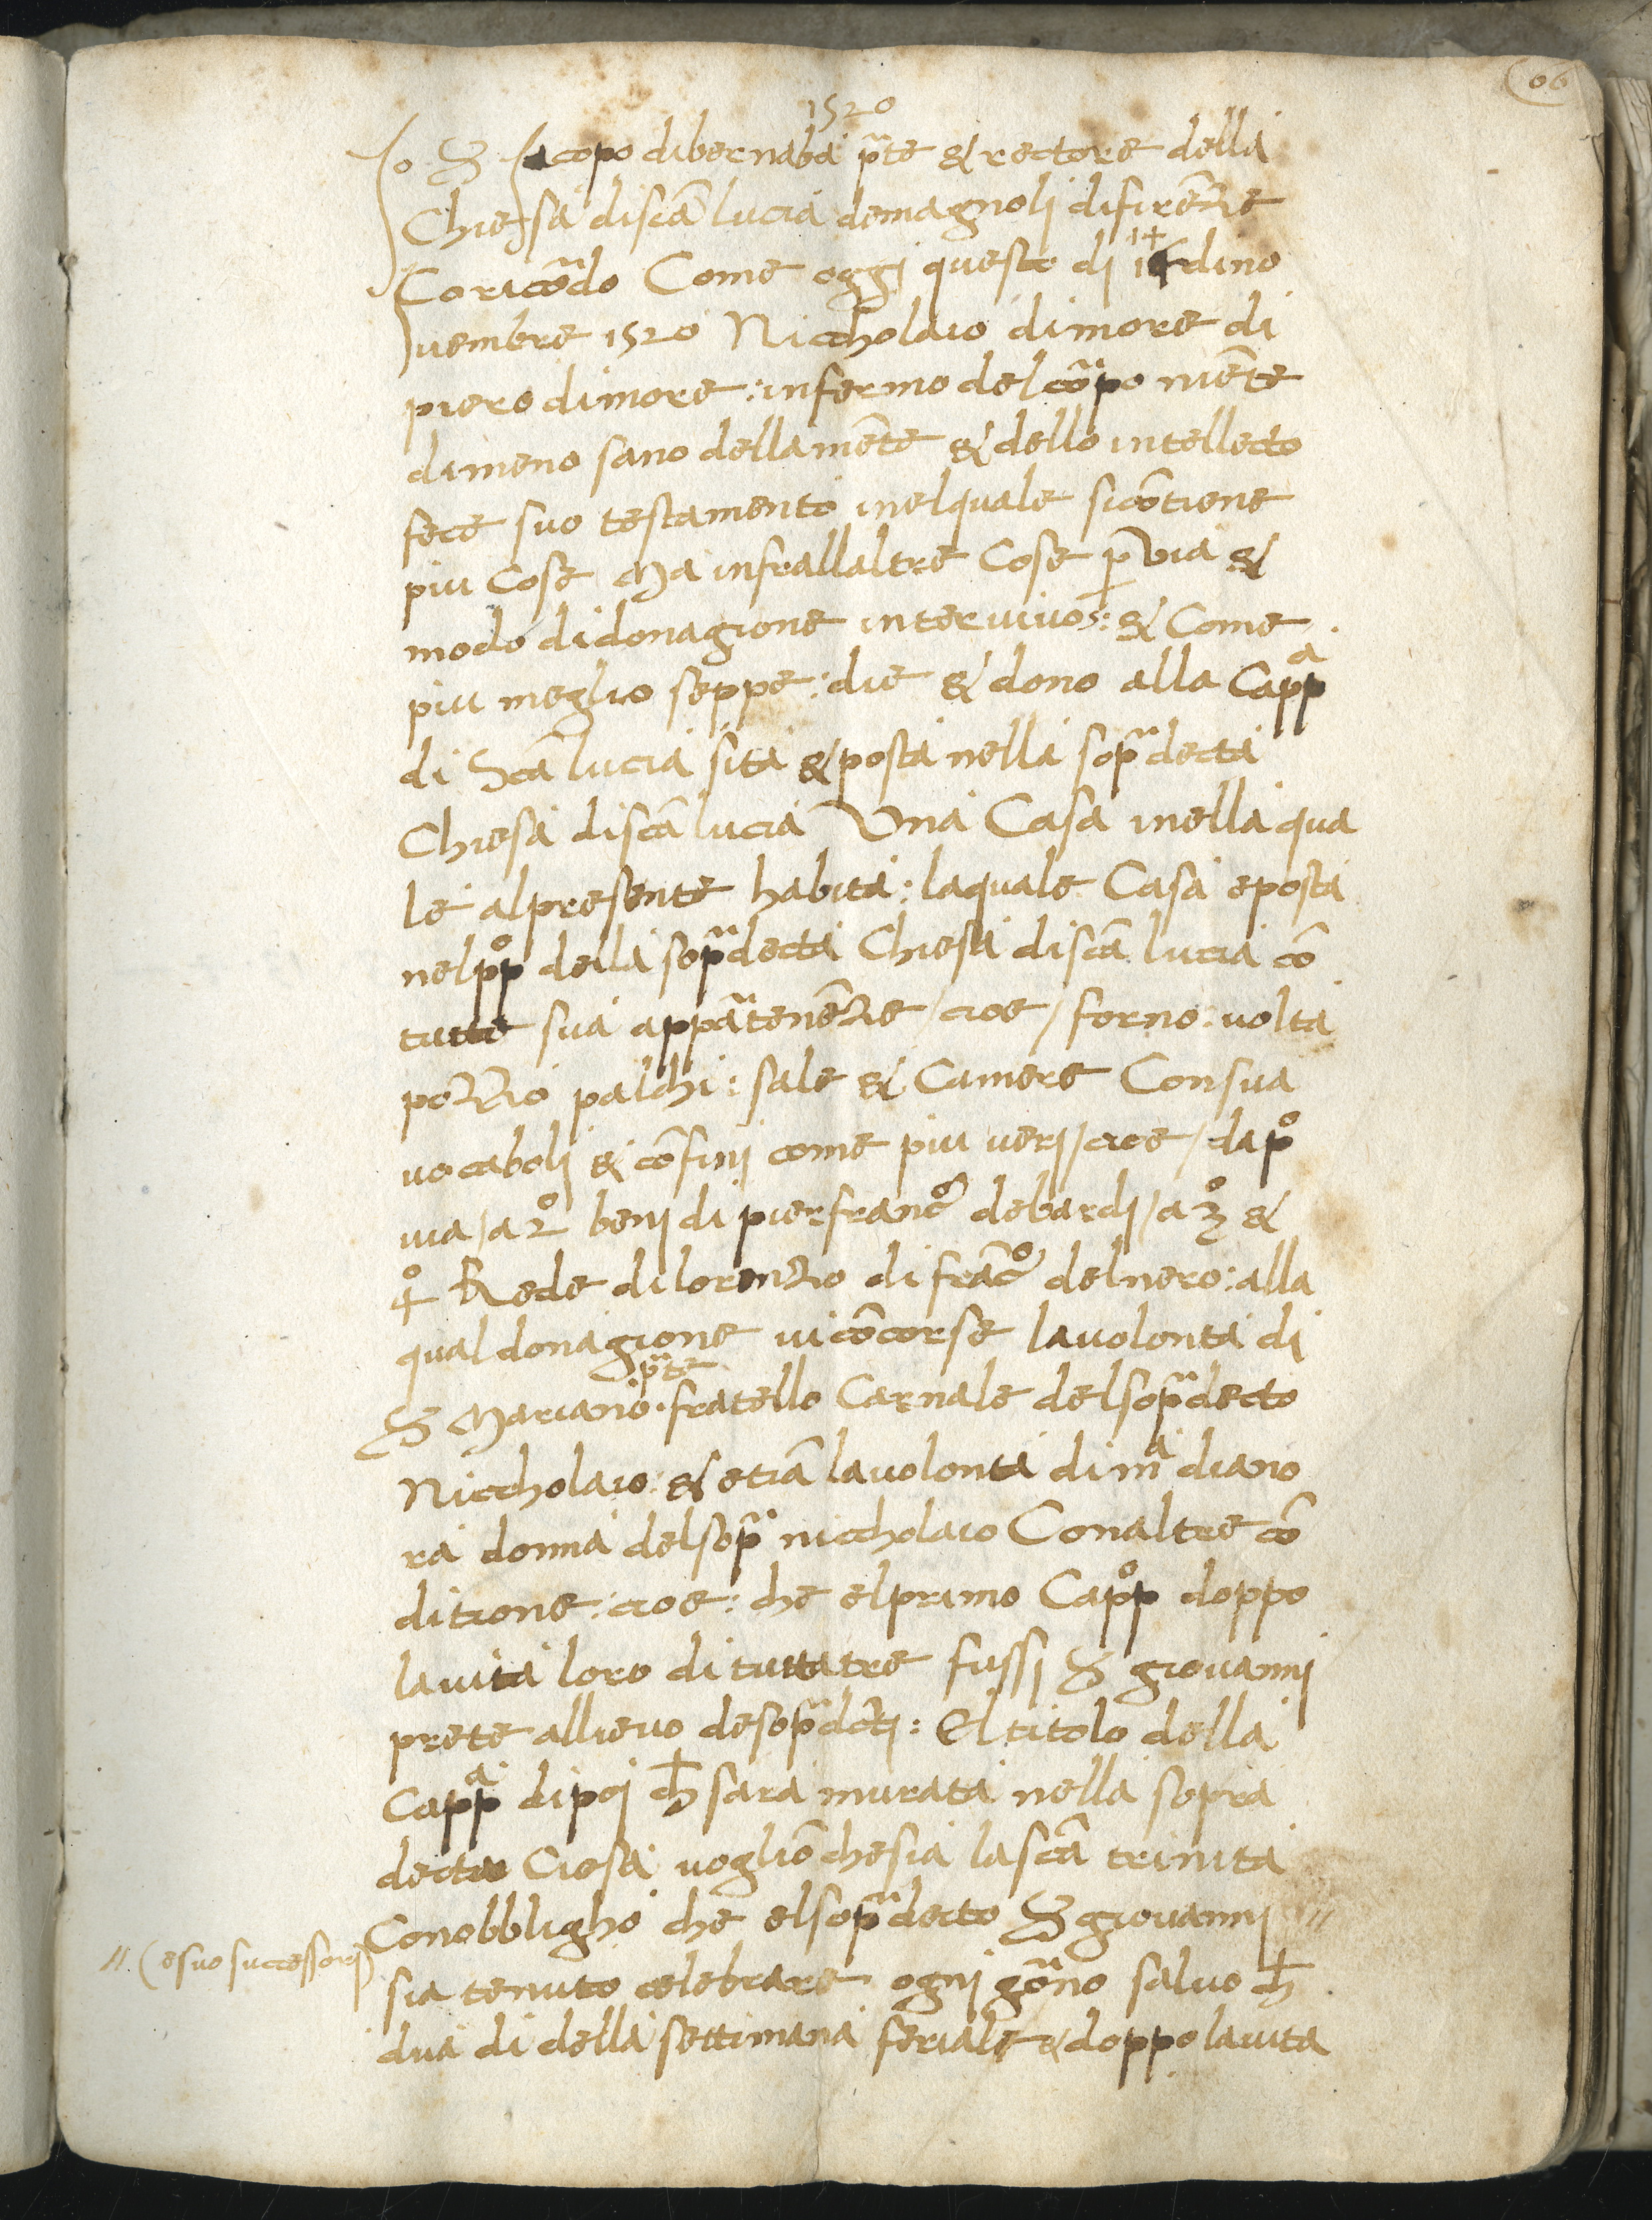 66
1520
Io S Iacopo dibernaba p̃te & rectore della
Chiesa discã lucia demagnoli difirẽze
fo ricõdo Come oggi questo di 14 dino
uembre 1520 Niccholaio dimore di
piero dimore : infermo del cõpo niẽte
dimeno sano della mẽte & dello intellecto
fece suo testamento inelquale sicõtiene
piu Cose Ma infrallaltre Cose p via &
modo di donagione inter vivos : & Come
piu meglio seppe : die & dono alla Capp^a
di Scã lucia sita & posta nella sop^a decta
Chiesa discã lucia Una Casa inella qua
le alpresente habita : laquale Casa eposta
nel pp° della sop^a decta Chiesa discã lucia cõ
tutte sua app^atenẽze / cioe / forno . volta
pozzo palchi : sale & Camere Con sua
vocaboli & cõfini come piu veri / cioe / da p°
via / a 2° beni di pierfranc° debardi / a 3° &
4° Rede dilorenzo di frãc° delnero : alla
qual donagione vi cõcorse lavolonta di
S Mariano p̃te . fratello Carnale delsop^a decto
Niccholaio : & etiã lavolonta di m^a diano
ra donna delsop^a niccholaio Con altre cõ
ditione : cioe : che elprimo Capp° doppo
lavita loro di tutta tre fussi S giovanni
prete allievo desop^a dcti : El titolo della
Capp^a dipoi ch̃ sara murata nella sopra
decta Ciesa voglião chesia lascã trinita
Conobbligho che elsop^a decto S giovanni //
// (e suo successori)
sia tenuto celebrare ogni gõno salvo ch̃
dua di della settimana feriale & doppo lavita